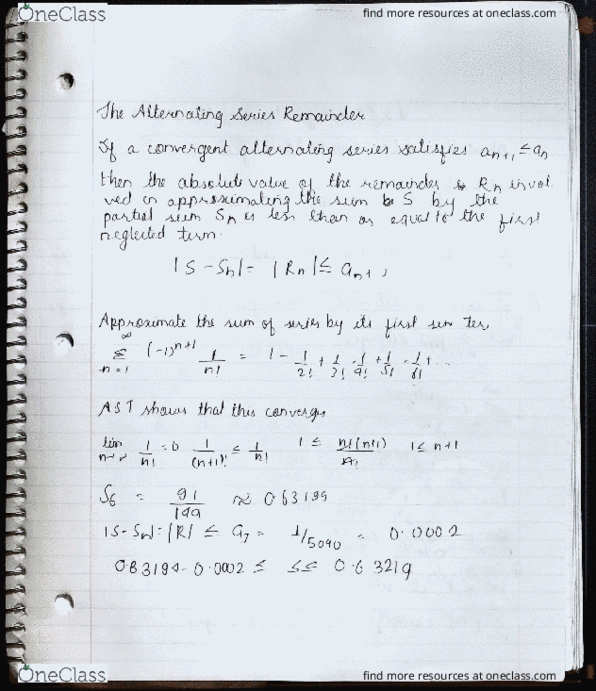 OneClass
find more resources at oneclass.com
The Alternating Series Remainder
If a convergent alternating series satisfies aₙ₊₁ ≤ aₙ
then the absolute value of the remainder Rₙ invol
ved in approximating the sum S by the
partial sum Sₙ is less than or equal to the first
neglected term.
|S - Sₙ| = |Rₙ| ≤ aₙ₊₁
Approximate the sum of series by its first ter
∞
Σ (-1)ⁿ⁺¹ 1/n! = 1 - 1/2! + 1/3! - 1/4! + 1/5! - 1/6! + ...
n=1
AST shows that this converges
lim 1/n! = 0 1/(n+1)! ≤ 1/n! 1 ≤ n!(n+1)/n! 1 ≤ n+1
S₆ = 91/144 ≈ 0.63194
|S - Sₙ| = |R| ≤ a₇ = 1/5040 = 0.0002
0.63194 - 0.0002 ≤ S ≤ 0.63219
OneClass
find more resources at oneclass.com